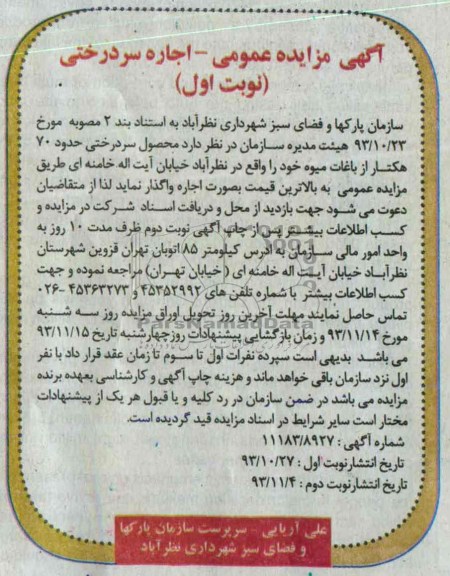 آگهی مزایده عمومی - اجاره سردرختی
(نوبت اول)
سازمان پارکها و فضای سبز شهرداری نظرآباد به استناد بند ۲ مصوبه مورخ
۹۳/۱۰/۲۳ هیئت مدیره سازمان در نظر دارد محصول سردرختی حدود ۷۰
هکتار از باغات میوه خود را واقع در نظرآباد خیابان آیت اله خامنه ای طریق
مزایده عمومی به بالاترین قیمت بصورت اجاره واگذار نماید لذا از متقاضیان
دعوت می شود جهت بازدید از محل و دریافت اسناد شرکت در مزایده و
کسب اطلاعات بیشتر پس از چاپ آگهی نوبت دوم ظرف مدت ۱۰ روز به
واحد امور مالی سازمان به آدرس کیلومتر ۸۵ اتوبان تهران قزوین شهرستان
نظرآباد خیابان آیت اله خامنه ای (خیابان تهران) مراجعه نموده و جهت
کسب اطلاعات بیشتر با شماره تلفن های ۴۵۳۵۲۹۹۲ و ۴۵۳۶۳۲۷۳ -۰۲۶
تماس حاصل نمایند مهلت آخرین روز تحویل اوراق مزایده روز سه شنبه
مورخ ۹۳/۱۱/۱۴ و زمان بازگشایی پیشنهادات روز چهارشنبه تاریخ ۹۳/۱۱/۱۵
می باشد بدیهی است سپرده نفرات اول تا سوم تا زمان عقد قرار داد با نفر
اول نزد سازمان باقی خواهد ماند و هزینه چاپ آگهی و کارشناسی بعهده برنده
مزایده می باشد در ضمن سازمان در رد کلیه و یا قبول هر یک از پیشنهادات
مختار است سایر شرایط در اسناد مزایده قید گردیده است.
شماره آگهی : ۱۱۱۸۳/۸۹۲۷
تاریخ انتشارنوبت اول : ۹۳/۱۰/۲۷
تاریخ انتشارنوبت دوم : ۹۳/۱۱/۴
علی آریایی - سرپرست سازمان پارکها
و فضای سبز شهرداری نظرآباد